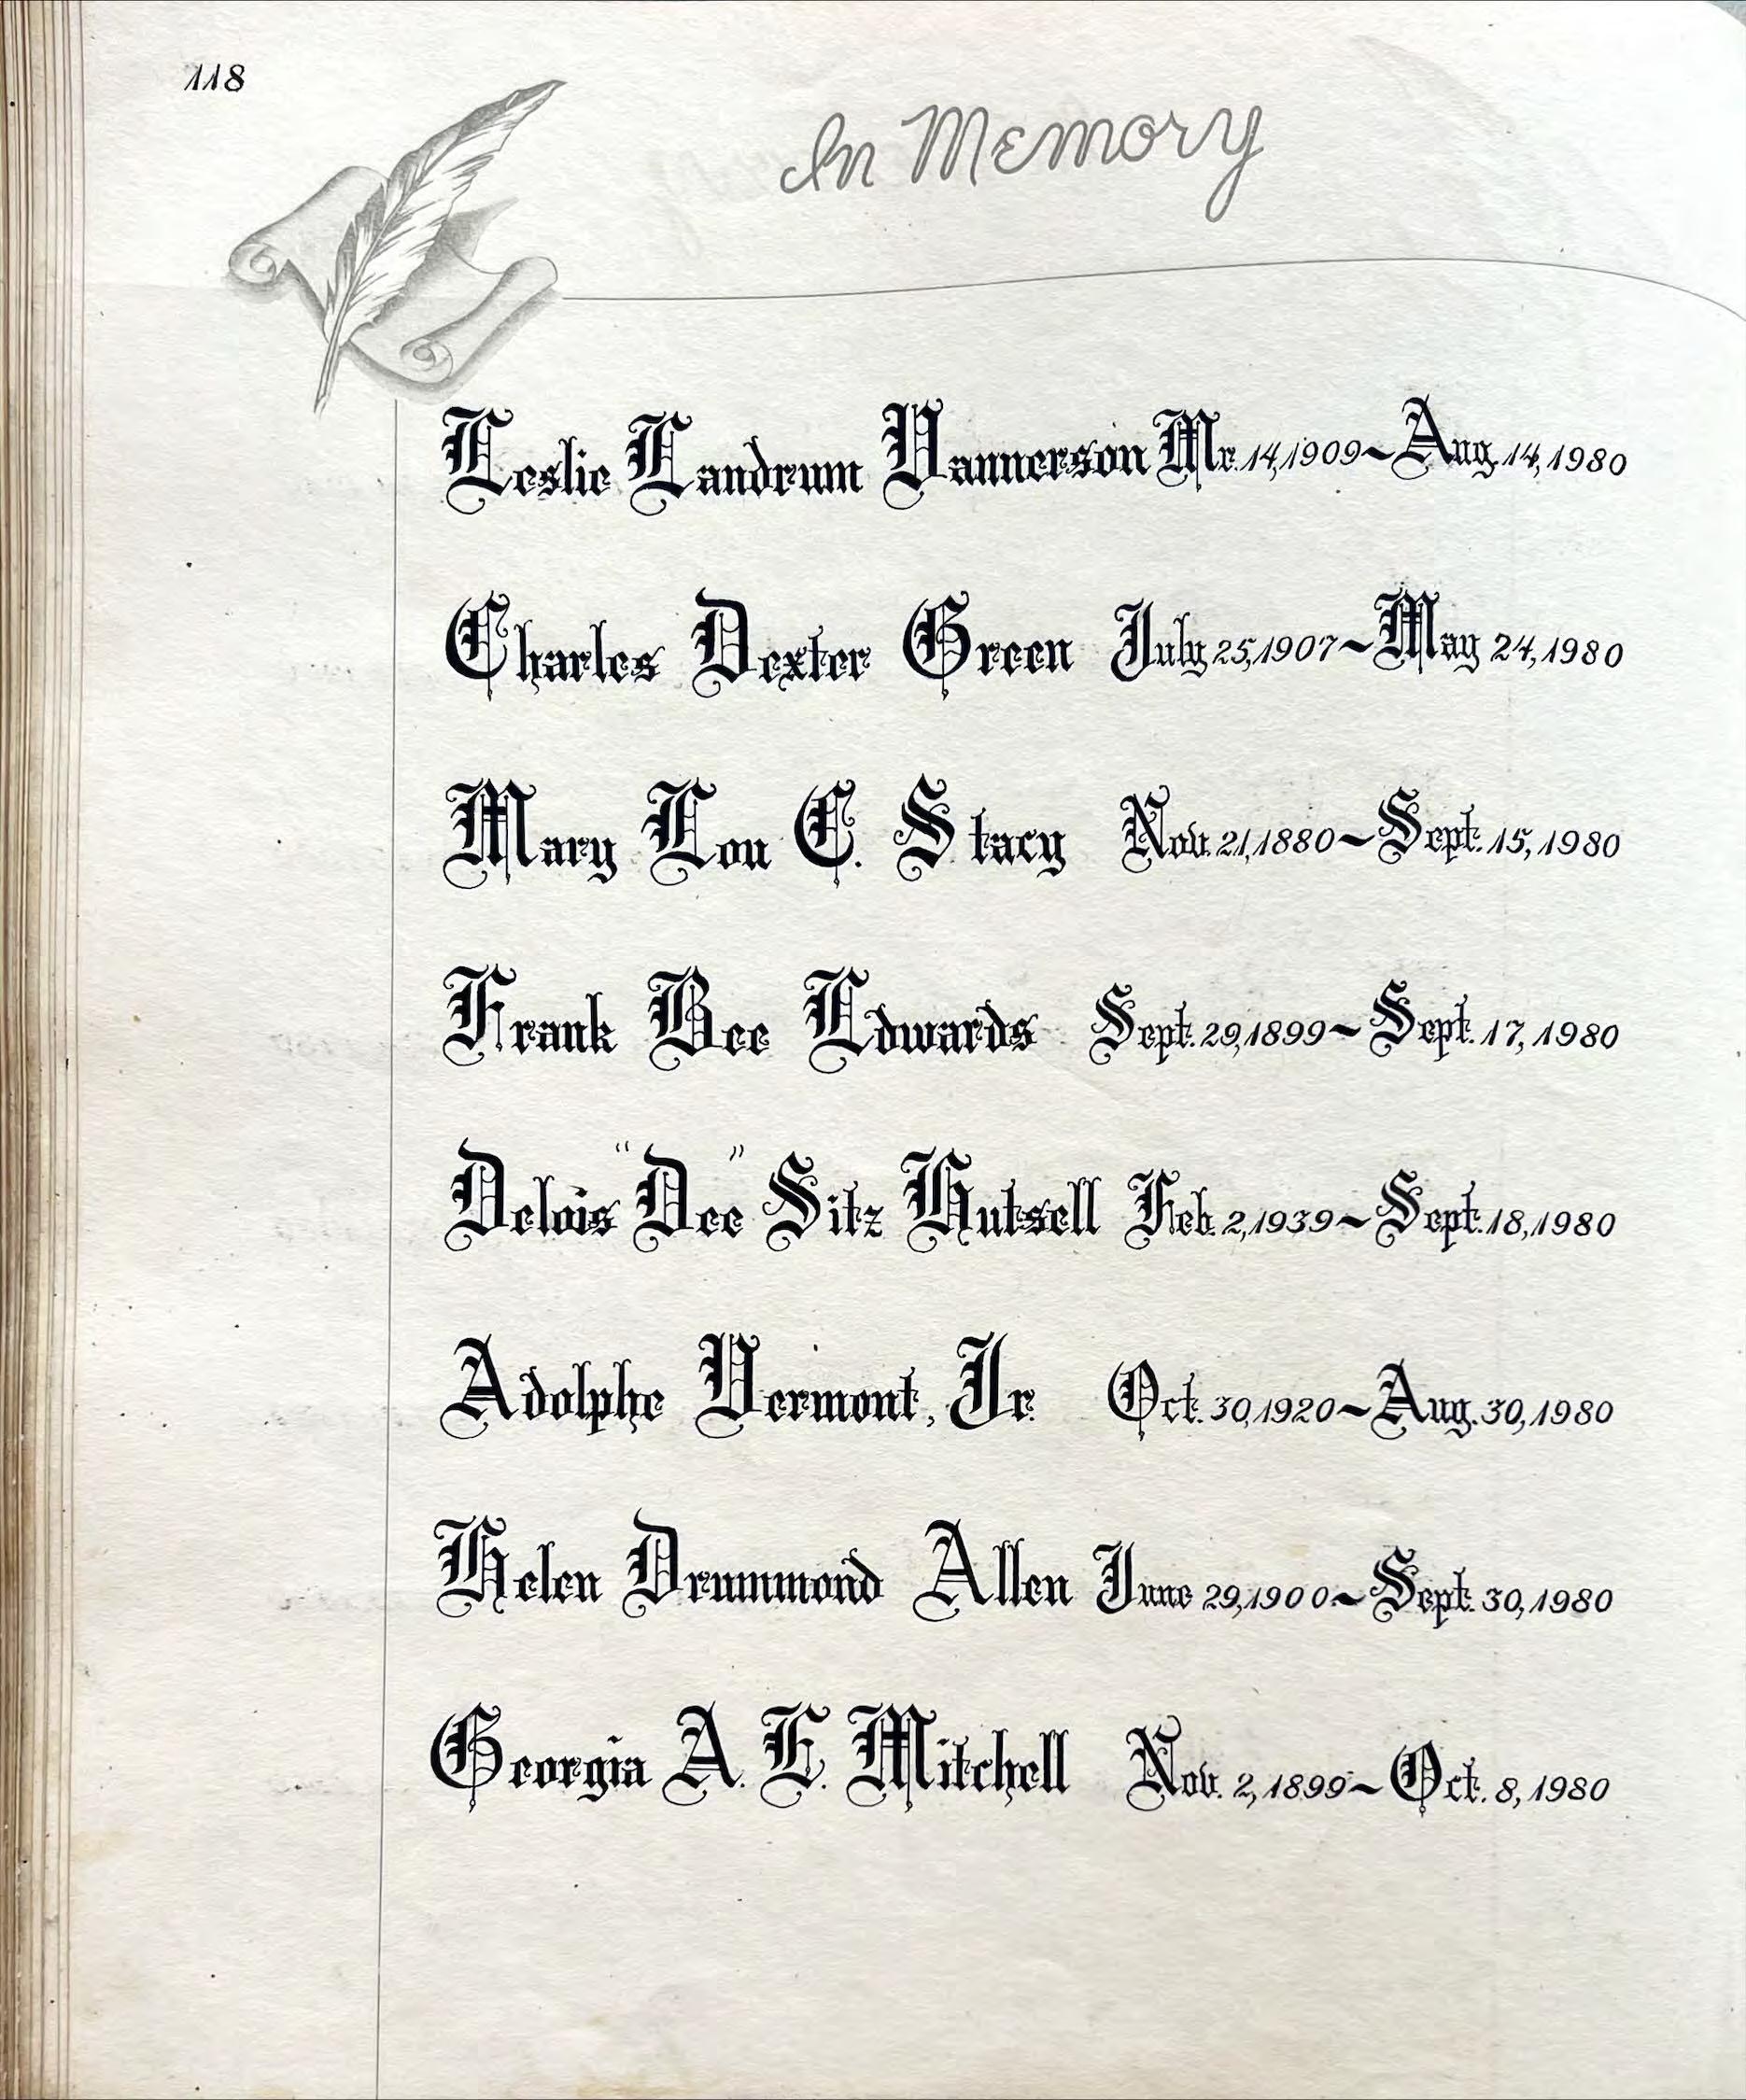 118
In Memory
Leslie Landrum Vannerson Mr. 14, 1909 ~ Aug. 14, 1980
Charles Dexter Green July 25, 1907 ~ May 24, 1980
Mary Lou C. Stacy Nov. 21, 1880 ~ Sept. 15, 1980
Frank Bee Edwards Sept. 29, 1899 ~ Sept. 17, 1980
Delois "Dee" Sitz Hutsell Feb. 2, 1939 ~ Sept. 18, 1980
Adolphe Vermont, Jr. Oct. 30, 1920 ~ Aug. 30, 1980
Helen Drummond Allen June 29, 1900 ~ Sept. 30, 1980
Georgia A. E. Mitchell Nov. 2, 1899 ~ Oct. 8, 1980